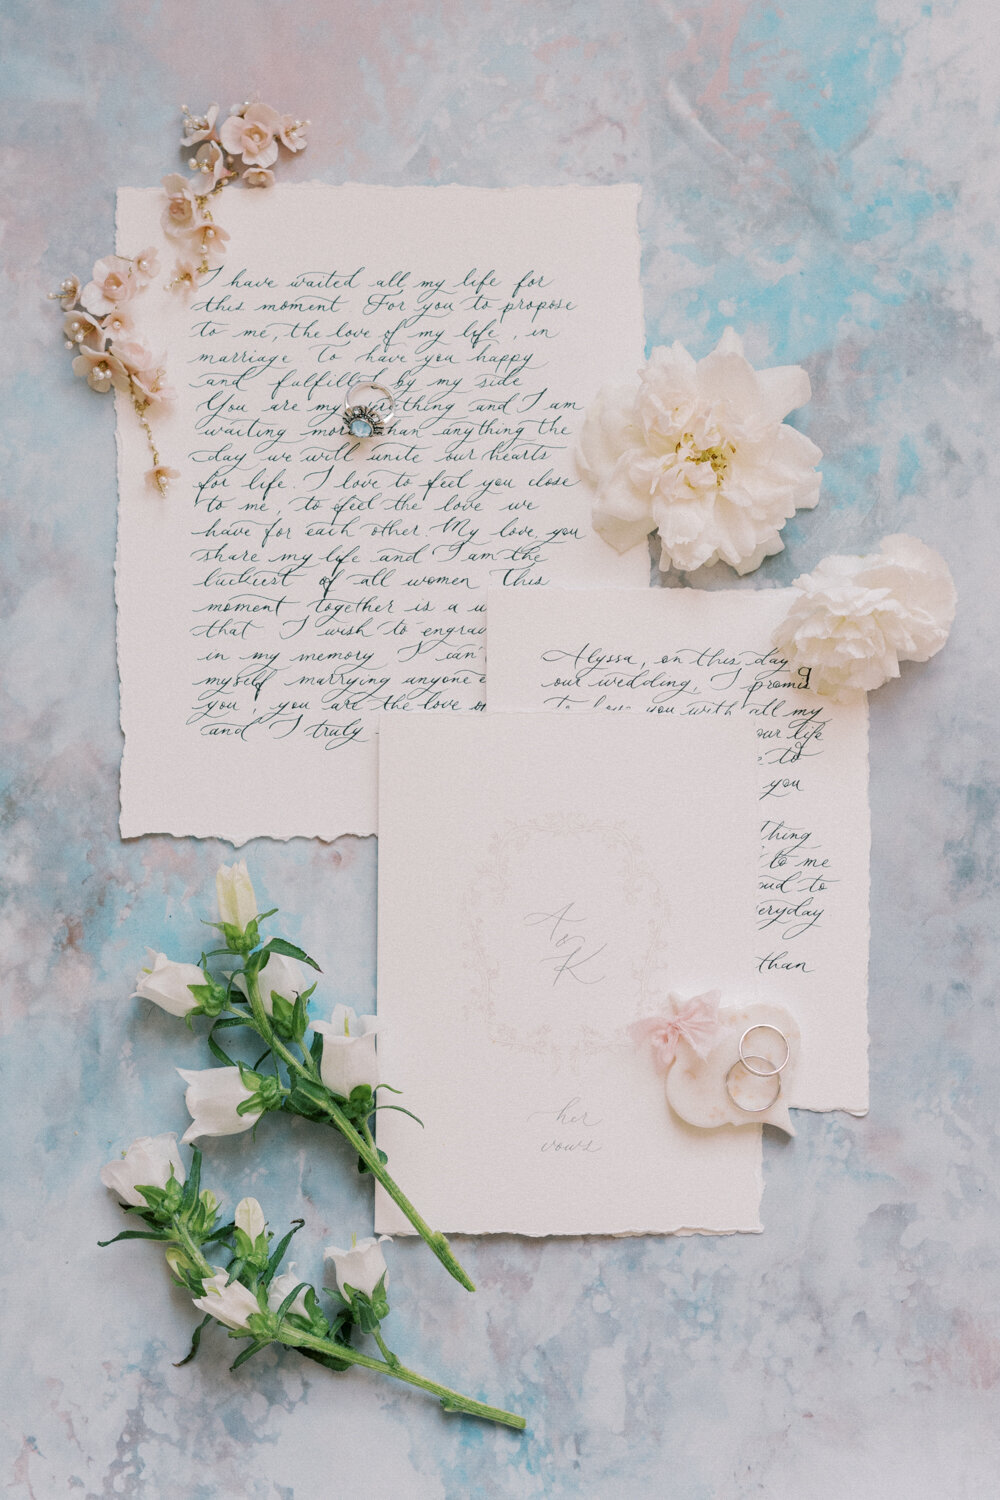 I have waited all my life for
this moment. For you to propose
to me, the love of my life, in
marriage To have you happy
and fulfilled by my side
You are my everything and I am
waiting more than anything the
day we will unite our hearts
for life. I love to feel you close
to me, to feel the love we
have for each other. My love, you
share my life and I am the
luckiest of all women This
moment together is a
that I wish to
in my memory I can'
myself marrying anyone
you, you are the love
and I truly
Alyssa, on this day
our wedding, I promise
to love you with all my
our life
to
you
thing
to me
to
everyday
than
A
&
K
her
vows